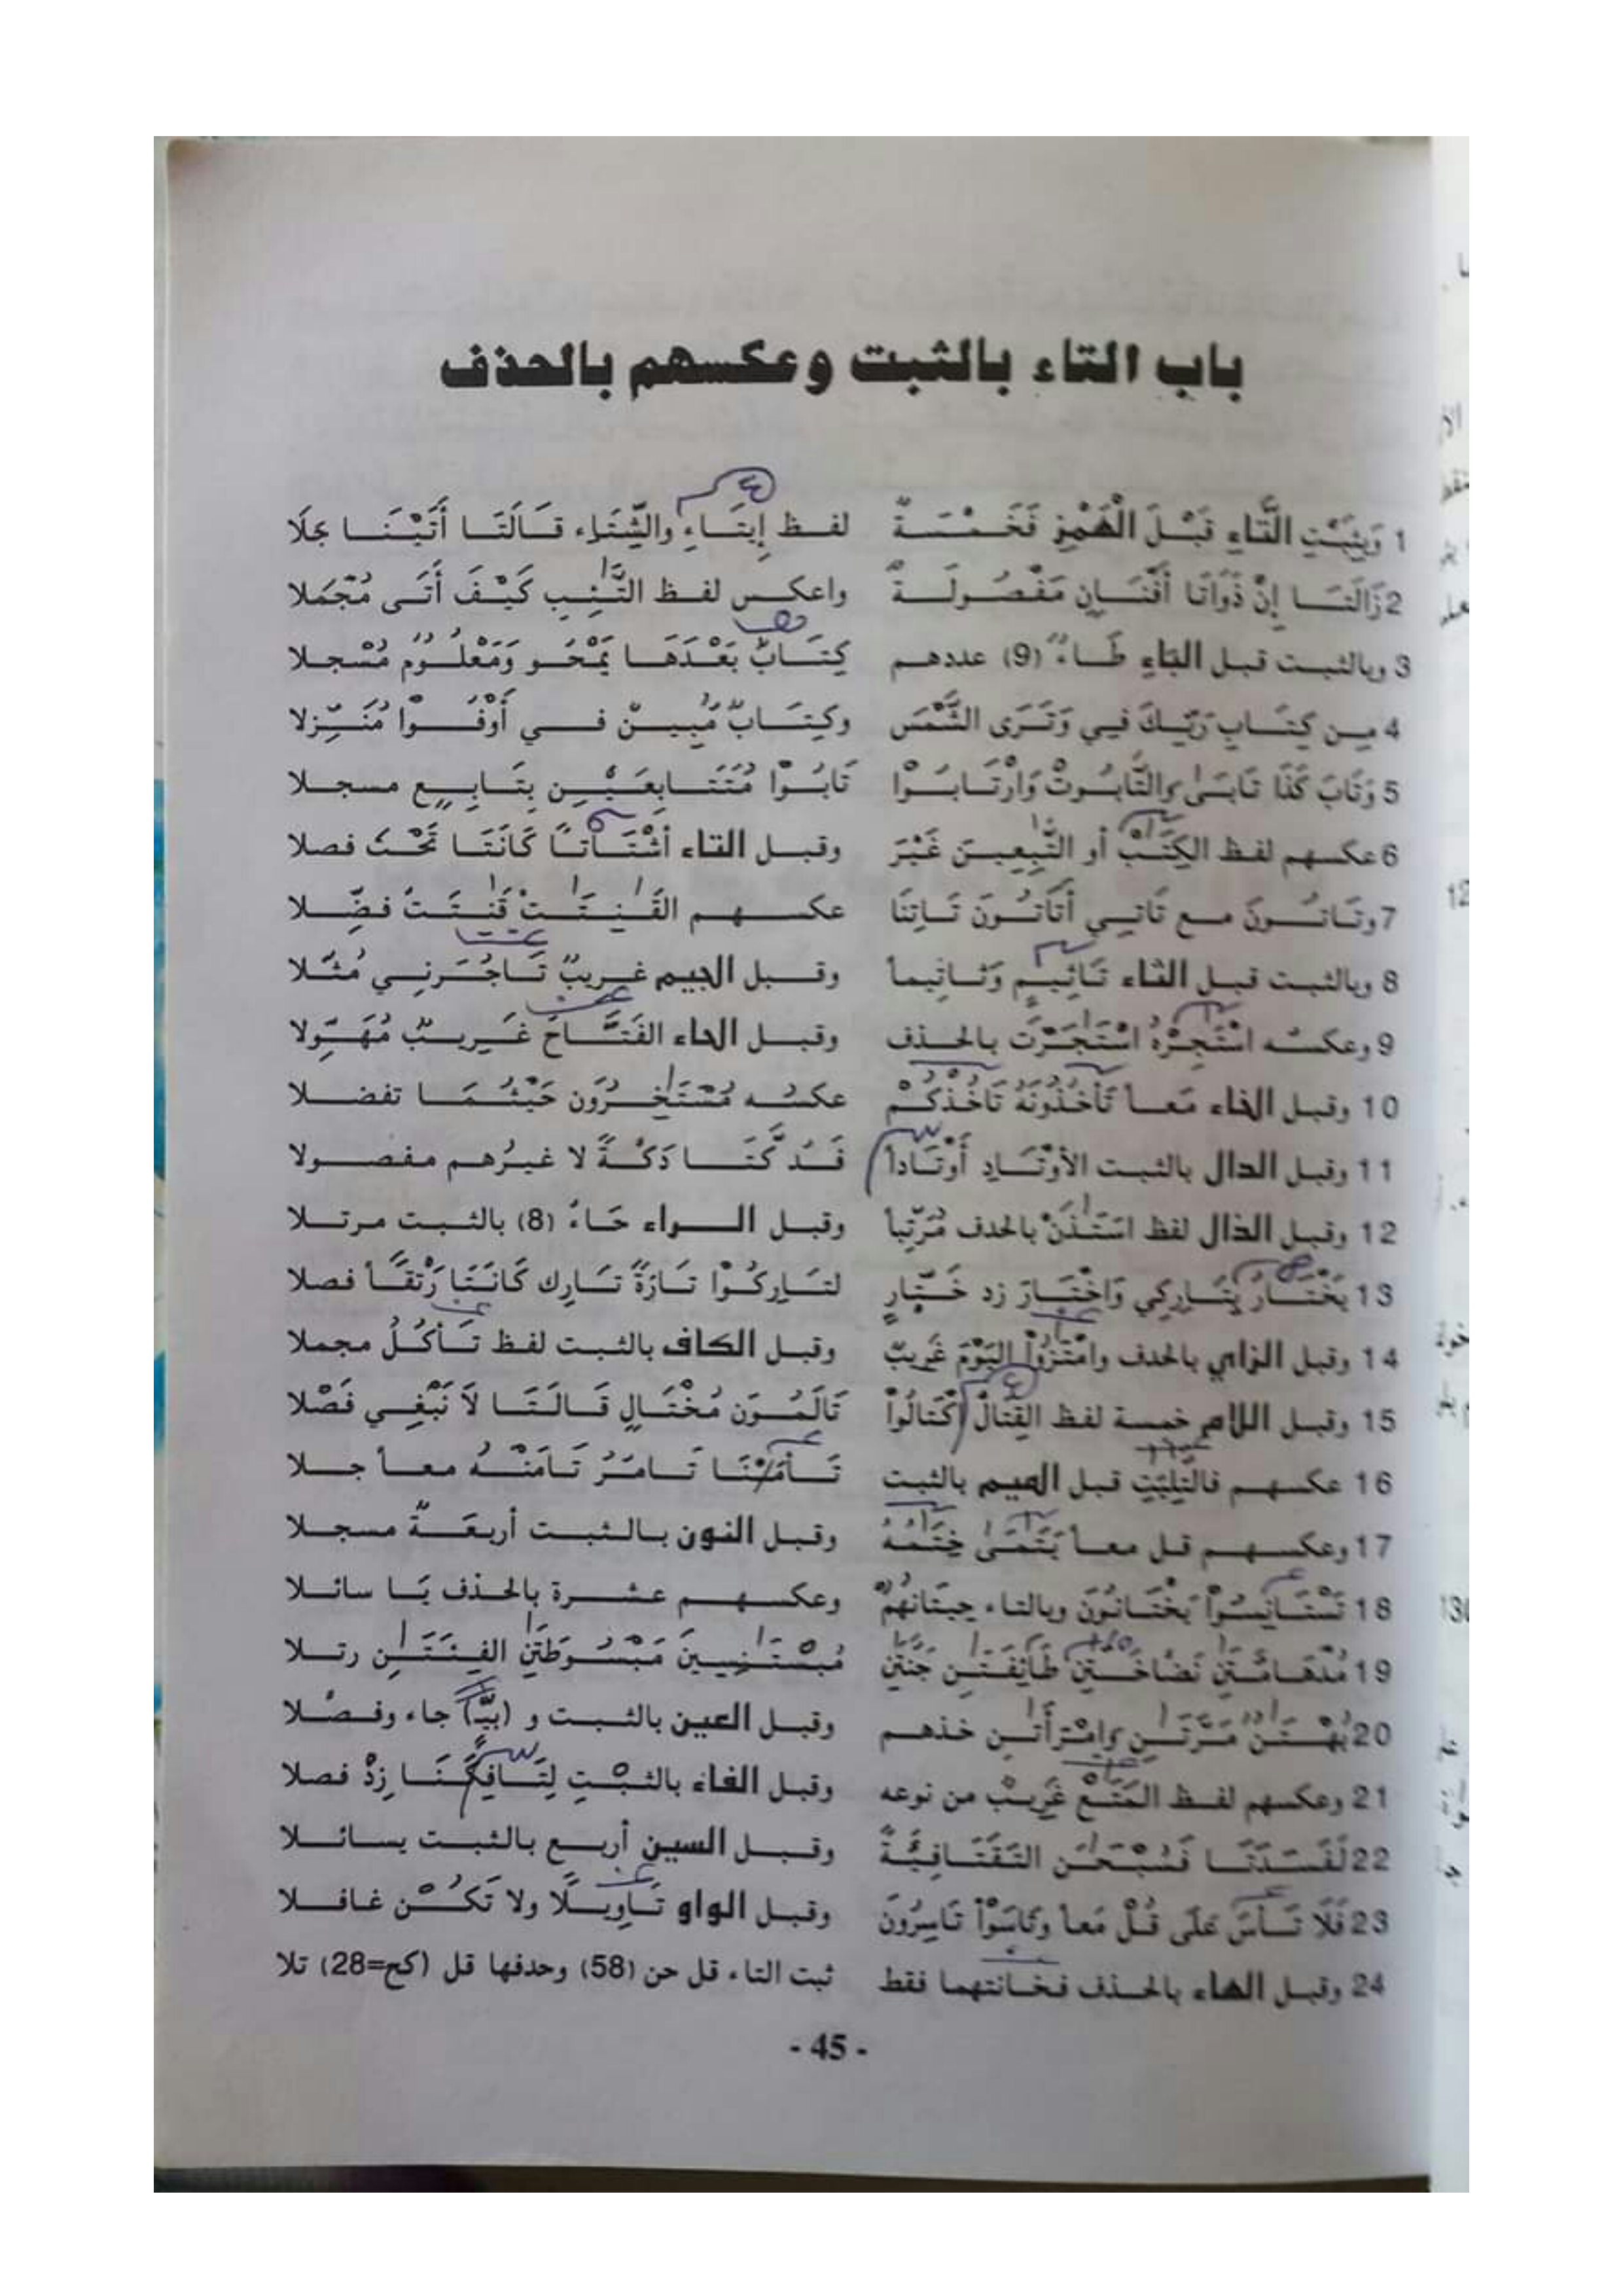 باب التاء بالثبت وعكسهم بالحذف
1 وَبِثَبْتِ التَّاءِ قَبْلَ الْهَمْزِ فَخَمْسَةٌ لفظ إِيتَاءِ والشِّتَاءِ قَالَتَا أَتَيْنَا جَلَا
2 زَالَتَا إِنْ ذَوَاتَا أَفْنَانٍ مَفْصُولَةٌ واعكس لفظ التَّئِبِ كَيْفَ أَتَى مُجْمَلا
3 وبالثبت قبل الباءِ طَاءٌ (9) عددهم كِتَابٌ بَعْدَهَا يَمْحُو وَمَعْلُومٌ مُسْجلا
4 مِن كِتَابِ رَبِّكَ فِي وَتَرَى الشَّمْسَ وكِتَابٌ مُبِينٌ في أَوْفُوا مُنَزِّلا
5 وَتَابَ كَذَا تَابَى والتَّابُوتْ وَارْتَابُوا تَابُوا مُتَتَابِعَيْنِ بِتَابِعٍ مسجلا
6 عكسهم لفظ الكِتَبْ أو التَّبِعِينَ غَيْرَ وقبل التاء أشْتَاتاً كَانَتَا تَحْتَ فصلا
7 وتَاتُونَ مع تَاتِي أَتَاتُونَ تَاتِنَا عكسهم القَنِتَتْ قَنِتَتٌ فضِّلا
8 وبالثبت قبل الثاء تَاثِيمٍ وَتاثِيماً وقبل الجيم غريبٌ تَاجُرَنِي مُثّلا
9 وعكسه اسْتَجِرْهُ اسْتَجَرْتَ بالحذف وقبل الحاء الفَتَّاحَ غَرِيبٌ مُهَوِّلا
10 وقبل الخاء مَعاً تَأخُذُونَهُ تَاخُذْكُمْ عكسُه مُسْتَخِرُونَ حَيْثُمَا تفضلا
11 وقبل الدال بالثبت الأوْتَادِ أَوْتَاداً فَدُكَّتَا دَكَّةً لا غيرُهم مفصولا
12 وقبل الذال لفظ اسْتَذَنْ بالحدف مُرَتِّباً وقبل الراء حَاءُ (8) بالثبت مرتلا
13 يَخْتَارُ بِتَارِكِي وَاخْتَارَ زد خَتَّارٍ لتَارِكُوا تَارَةً تَارِك كَانَتَا رَتْقاً فصلا
14 وقبل الزاي بالحدف وامْتَزُوا الْيَوْمَ غَرِيبٌ وقبل الكاف بالثبت لفظ تَأكُلُ مجملا
15 وقبل اللام خمسة لفظ القِتَالْ اكْتَالُوا تَالَمُونَ مُخْتَالٍ قَالَتَا لاَ نَبْغِي فَصْلا
16 عكسهم فالتلِيَتِ قبل الميم بالثبت تَأمَنَّا تَامُرُ تَامَنْهُ معاً جلا
17 وعكسهم قل معاً يَتَمَىٰ خِتَمُهُ وقبل النون بالثبت أربعَةٌ مسجلا
18 تَسْتَانِسُوا يَخْتَانُونَ وبالتاء حِيتَانُهُمْ وعكسهم عشرة بالحذف يَا سائلا
19 مُدْهَامَّتَنِ نَضَّاخَتَنِ طَائِفَتَنِ جَنَّتَنِ مُسْتَنِسِينَ مَبْسُوطَتَنِ الفِئَتَنِ رتلا
20 بُهْتَنٌ مَرَّتَنِ وامْرَأَتَنِ خذهم وقبل العين بالثبت و (بيًّا) جاء وفصّلا
21 وعكسهم لفظ المَتَعْ غَرِيبٌ من نوعه وقبل الفاء بالثبْتِ لِتَافِكَنَا زِدْ فصلا
22 لَفَسَدَتَا فَسُبْحَنَ وقبل السين أربع بالثبت يسائلا
23 فَلَا تَأسَ عَلَى قُلْ مَعاً وتَاسَوْا تَاسِرُونَ وقبل الواو تَاوِيلًا ولا تَكُنْ غافلا
24 وقبل الهاء بالحذف فخانتهما فقط ثبت التاء قل حن (58) وحدفها قل (كح=28) تلا
- 45 -